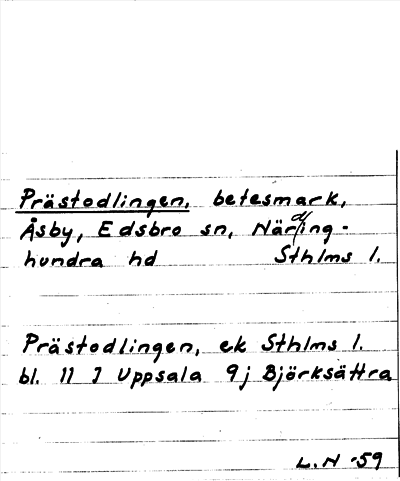 Prästodlingen, betesmark,
Åsby, Edsbro sn, Närding-
hundra hd Sthlms l.
Prästodlingen, ek Sthlms l.
bl. 11 I Uppsala 9j Björksättra
L.N -59